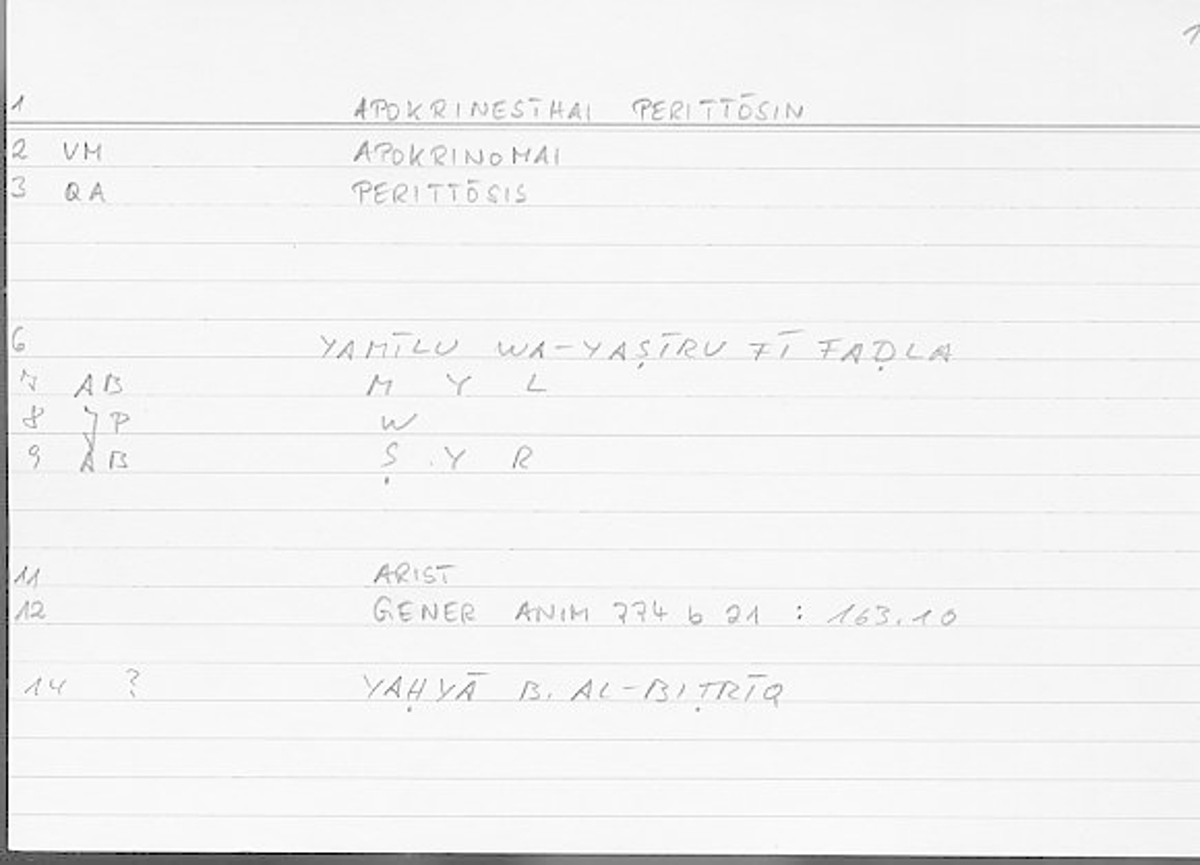 1
1 APOKRINESTHAI PERITTŌSIN
2 VM APOKRINOMAI
3 QA PERITTŌSIS
6 YAMĪLU WA-YAṢĪRU FĪ FAḌLA
7 AB M Y L
8 JP W
9 AB Ṣ Y R
11 ARIST
12 GENER ANIM 774 b 21 : 163.10
14 ? YAḤYĀ B. AL-BIṬRĪQ